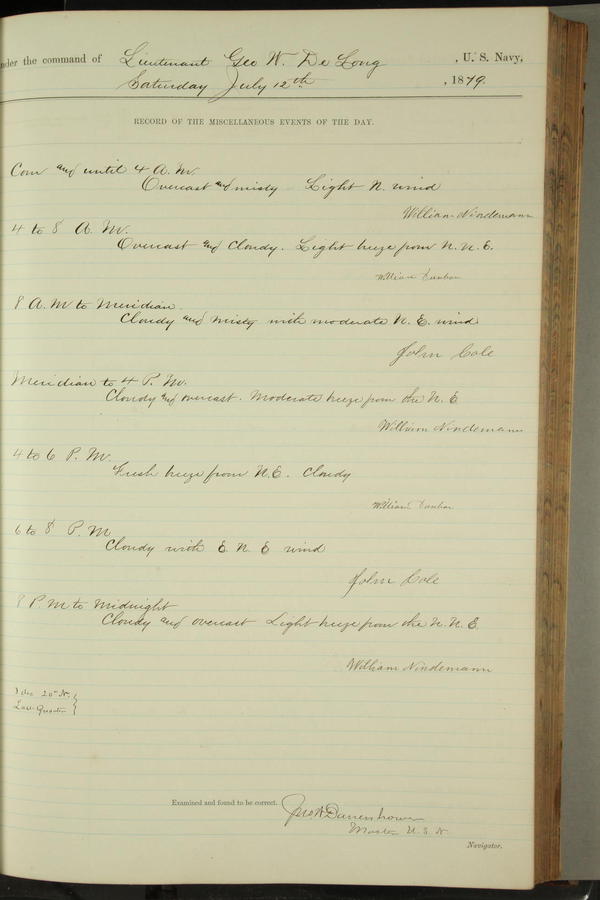 nder the command of Lieutenant Geo W. De Long, U. S. Navy,
Saturday July 12th, 1879.
RECORD OF THE MISCELLANEOUS EVENTS OF THE DAY.
Com and until 4 A. M.
Overcast and misty Light N. wind
William Nindemann
4 to 8 A. M.
Overcast and Cloudy. Light breeze from N. N. E.
William Dunbar
8 A. M to Meridian.
Cloudy and misty with moderate N. E. wind
John Cole
Meridian to 4 P. M.
Cloudy and overcast. Moderate breeze from the N. E
William Nindemann
4 to 6 P. M.
Fresh breeze from N. E. Cloudy
William Dunbar
6 to 8 P. M
Cloudy with E. N. E wind
John Cole
8 P. M to Midnight
Cloudy and overcast Light breeze from the N. N. E.
William Nindemann
20° N.
Last Quarter
Examined and found to be correct. Jno W Danenhower
Master U. S. N.
Navigator.